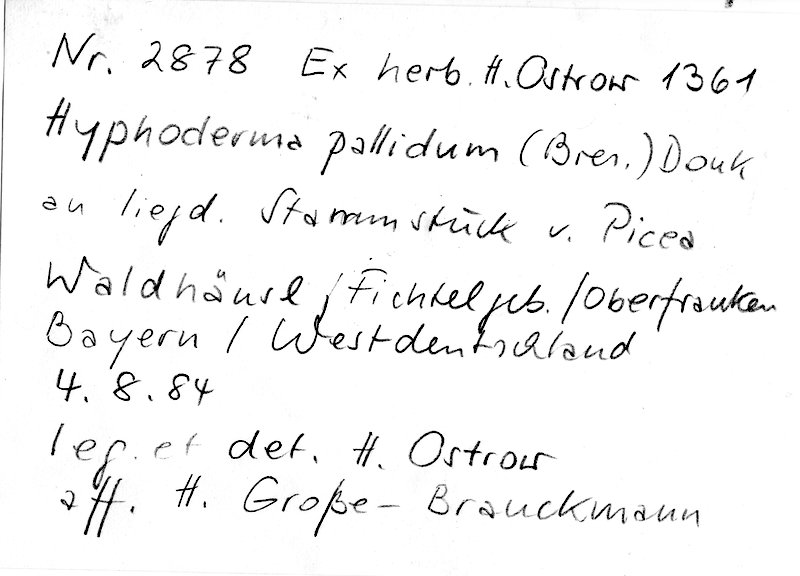 Nr. 2878 Ex herb. H. Ostrow 1361
Hyphoderma pallidum (Bres.) Donk
an liegd. Stammstück v. Picea
Waldhäusl / Fichtelgeb. / Oberfranken
Bayern / Westdeutschland
4. 8. 84
leg. et det. H. Ostrow
aff. H. Große-Brauckmann